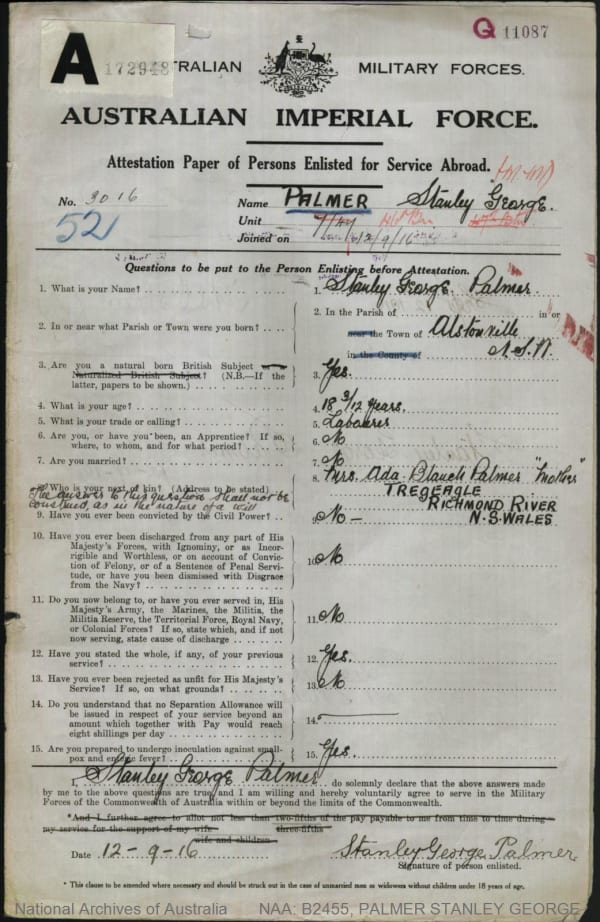 A
172948
Q 11087
AUSTRALIAN MILITARY FORCES.
AUSTRALIAN IMPERIAL FORCE.
Attestation Paper of Persons Enlisted for Service Abroad.
No. 3016
Name PALMER Stanley George.
52
Unit
Joined on 12/9/16
Questions to be put to the Person Enlisting before Attestation.
1. What is your Name?
1. Stanley George Palmer.
2. In or near what Parish or Town were you born?
2. In the Parish of in or
near the Town of Alstonville
in the County of N.S.W.
3. Are you a natural born British Subject or a
Naturalized British Subject? (N.B.—If the
latter, papers to be shown.)
3. Yes.
4. What is your age?
4. 18 3/12 Years.
5. What is your trade or calling?
5. Labourer
6. Are you, or have you been, an Apprentice? If so,
where, to whom, and for what period?
6. No
7. Are you married?
7. No
8. Who is your next of kin? (Address to be stated)
The answer to this question shall not be
construed as in the nature of a will
8. Mrs. Ada Blanch Palmer "Mother"
TREGEAGLE
RICHMOND RIVER
N.S.WALES
9. Have you ever been convicted by the Civil Power?
9. No —
10. Have you ever been discharged from any part of His
Majesty's Forces, with Ignominy, or as Incor-
rigible and Worthless, or on account of Convic-
tion of Felony, or of a Sentence of Penal Servi-
tude, or have you been dismissed with Disgrace
from the Navy?
10. No
11. Do you now belong to, or have you ever served in, His
Majesty's Army, the Marines, the Militia, the
Militia Reserve, the Territorial Force, Royal Navy,
or Colonial Forces? If so, state which, and if not
now serving, state cause of discharge
11. No
12. Have you stated the whole, if any, of your previous
service?
12. Yes.
13. Have you ever been rejected as unfit for His Majesty's
Service? If so, on what grounds?
13. No
14. Do you understand that no Separation Allowance will
be issued in respect of your service beyond an
amount which together with Pay would reach
eight shillings per day
14.
15. Are you prepared to undergo inoculation against small-
pox and enteric fever?
15. Yes.
I, Stanley George Palmer do solemnly declare that the above answers made
by me to the above questions are true, and I am willing and hereby voluntarily agree to serve in the Military
Forces of the Commonwealth of Australia within or beyond the limits of the Commonwealth.
*And I further agree to allot not less than two-fifths of the pay payable to me from time to time during
three-fifths
my service for the support of my wife
wife and children
Date 12-9-16
Stanley George Palmer.
Signature of person enlisted.
* This clause to be amended where necessary and should be struck out in the case of unmarried men or widowers without children under 18 years of age.
National Archives of Australia NAA: B2455, PALMER STANLEY GEORGE